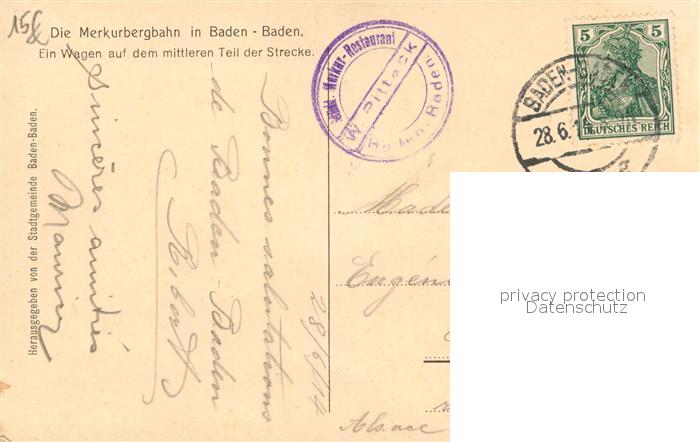 15
Die Merkurbergbahn in Baden-Baden.
Ein Wagen auf dem mittleren Teil der Strecke.
Herausgegeben von der Stadtgemeinde Baden-Baden.
Sincères amitiés
Bonnes salutations
de Baden-Baden
28/6/14
Merkur-Restaurant
W. Pittack
Baden-Baden.
5 5
DEUTSCHES REICH
BADEN-BADEN
28.6.1
Eugén
Alsace
privacy protection
Datenschutz